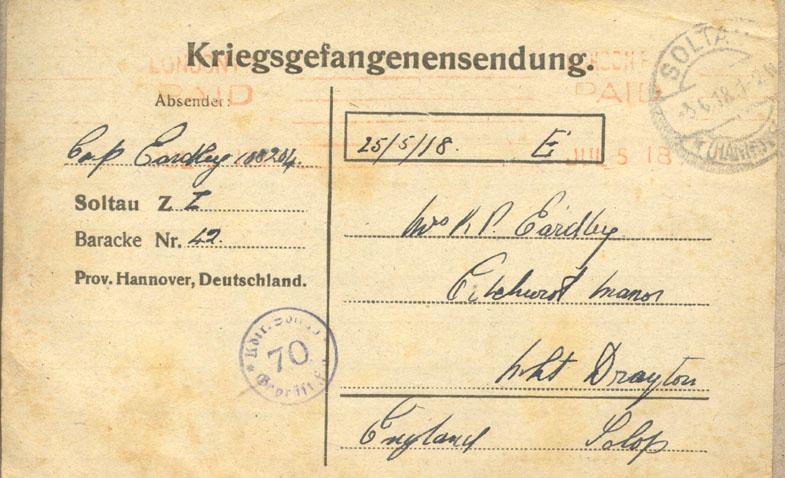 Kriegsgefangenensendung.
LONDON
PAID
PAID
JUL 5 18
SOLTAU
-3.6.18.1-2N
* (HANNOV
Absender:
Corp Eardley
Soltau Z I
Baracke Nr. 42.
Prov. Hannover, Deutschland.
70
Geprüft
25/5/18. E
Mrs K P. Eardley
Manor
Mkt Drayton
England Salop